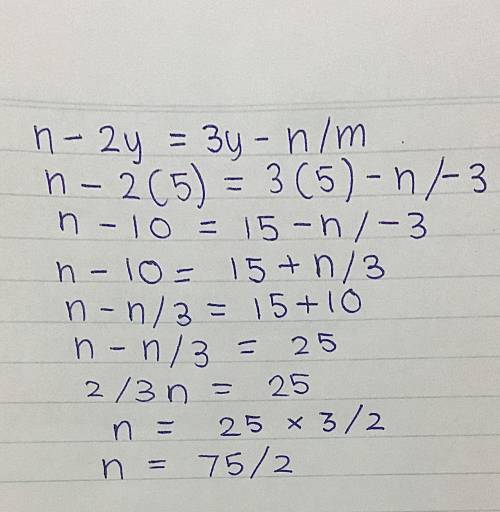 n - 2y = 3y - n/m
n - 2(5) = 3(5) - n/-3
n - 10 = 15 - n/-3
n - 10 = 15 + n/3
n - n/3 = 15 + 10
n - n/3 = 25
2/3n = 25
n = 25 × 3/2
n = 75/2